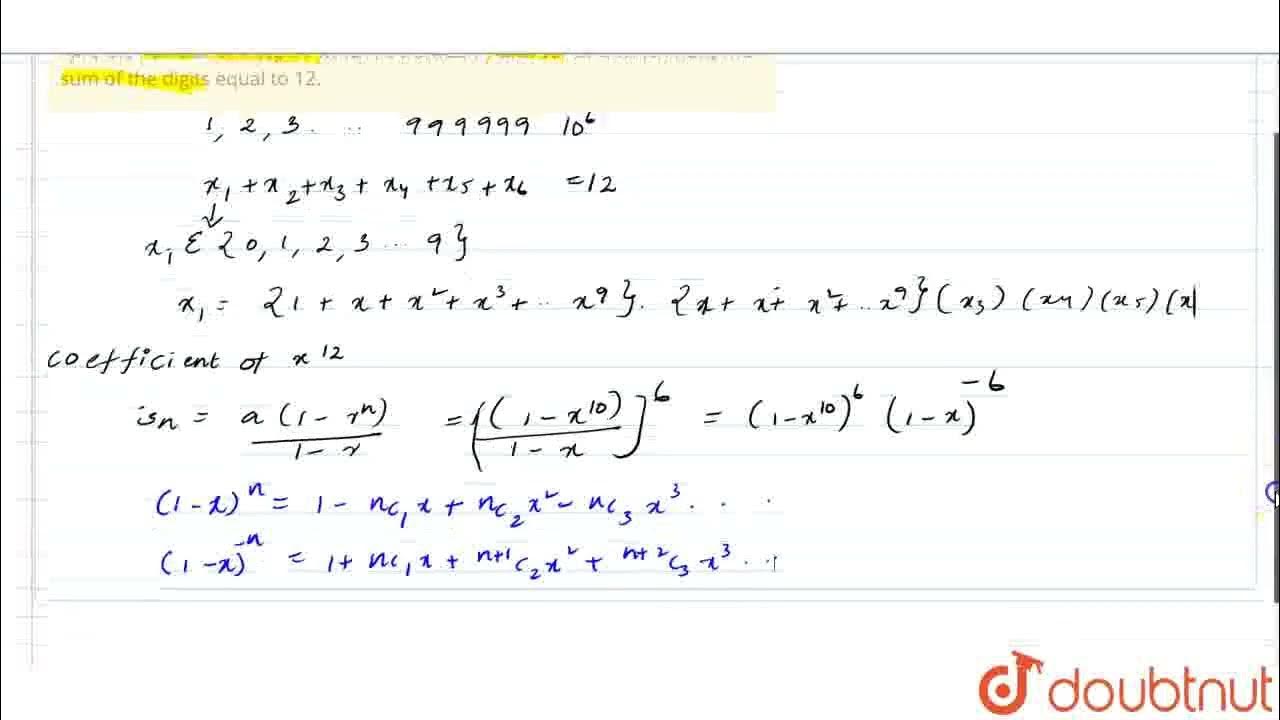 sum of the digits equal to 12.
1, 2, 3 . .. 999999 10⁶
x₁ + x₂ + x₃ + x₄ + x₅ + x₆ = 12
↓
x₁ ε {0, 1, 2, 3 ... 9}
x₁ = {1 + x + x² + x³ + .. x⁹}. {x + x + x² + .. x⁹} (x₃) (x₄) (x₅) (x
coefficient of x¹²
isₙ = a(1 - rⁿ)/(1 - r) = [(1 - x¹⁰)/(1 - x)]⁶ = (1 - x¹⁰)⁶ (1 - x)⁻⁶
(1 - x)ⁿ = 1 - nc₁x + nc₂x² - nc₃x³ . . .
(1 - x)⁻ⁿ = 1 + nc₁x + ⁿ⁺¹c₂x² + ⁿ⁺²c₃x³ . . +
doubtnut